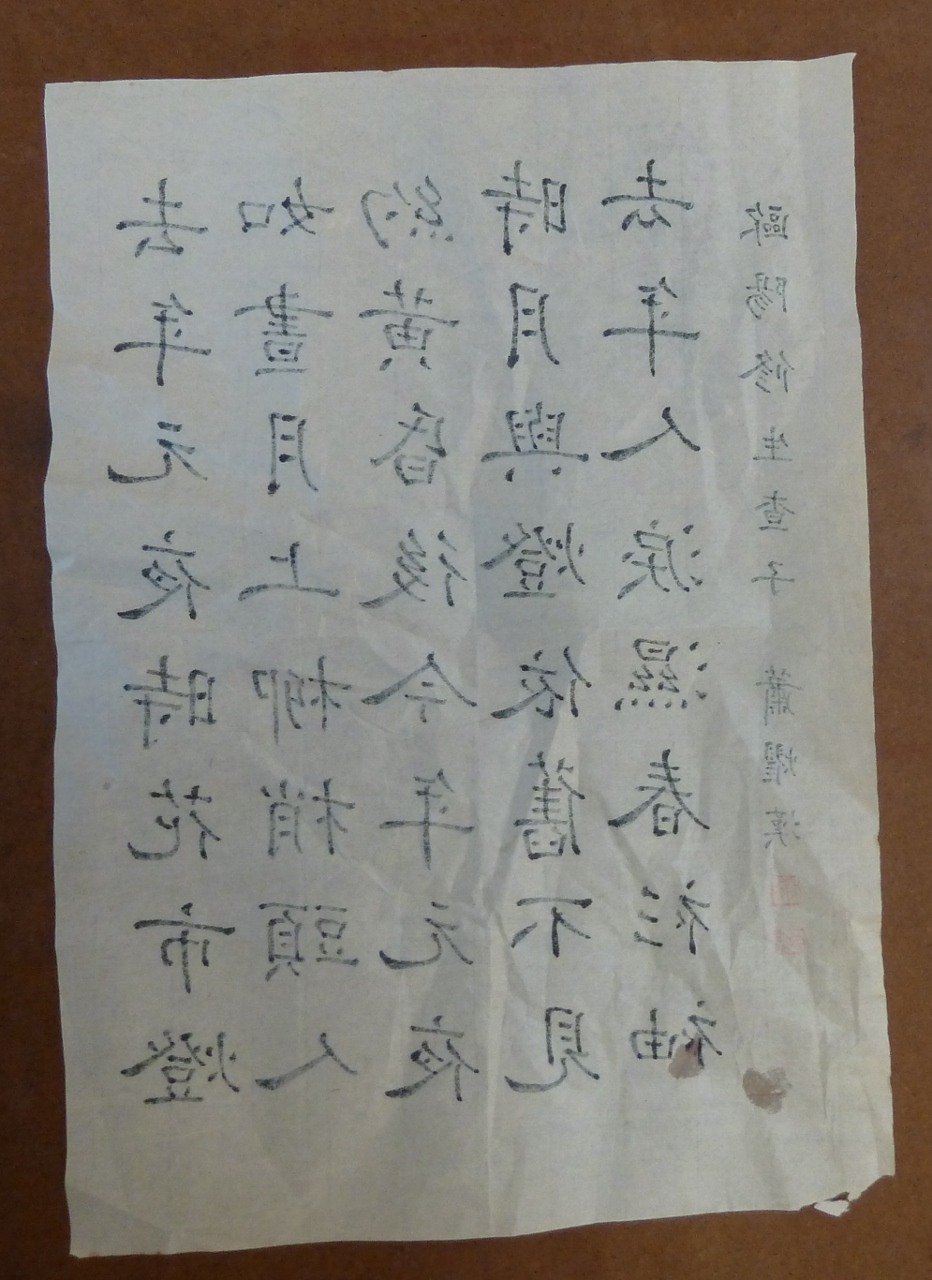 去年元夜時花市燈
如晝月上柳梢頭人
約黃昏後今年元夜
時月與燈依舊不見
去年人淚濕春衫袖
歐陽修生查子 蕭燿漢